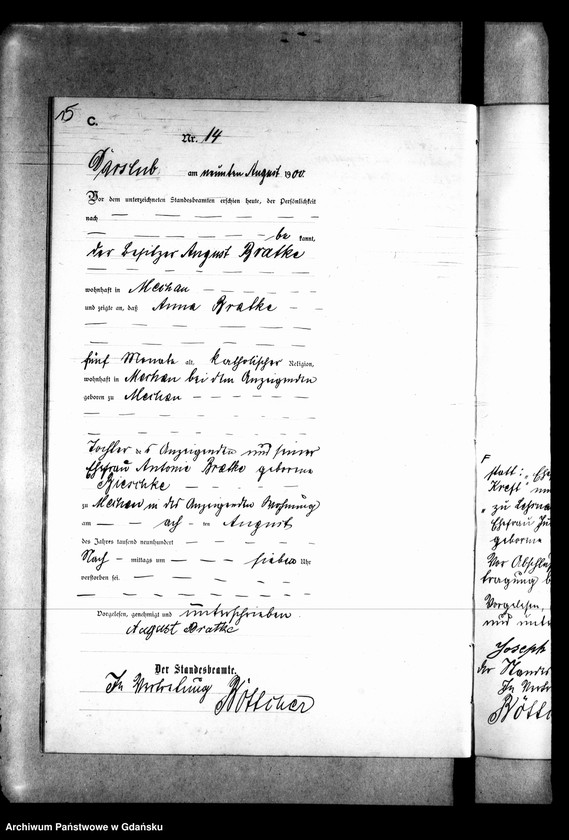 15
C.
Nr. 14
Darslub am neunten August 1900.
Vor dem unterzeichneten Standesbeamten erschien heute, der Persönlichkeit
nach
be kannt,
der Besitzer August Bratke
wohnhaft in Mechau
und zeigte an, daß Anna Bratke
fünf Monate alt, katholischer Religion,
wohnhaft in Mechau bei dem Anzeigenden
geboren zu Mechau
Tochter des Anzeigenden und seiner
Ehefrau Antonie Bratke geborene
zu Mechau in des Anzeigenden Wohnung
am ach ten August
des Jahrs tausend neunhundert
Nach mittags um sieben Uhr
verstorben sei.
Vorgelesen, genehmigt und unterschrieben
August Bratke
Der Standesbeamte.
In Vertretung Böttcher
statt: „
Kreft"
„zu
Ehefrau
geborene
Vor Abschlu
tragung
Vorgelesen,
und unte
Joseph
der Standes
In Vertr
Bött
Archiwum Państwowe w Gdańsku